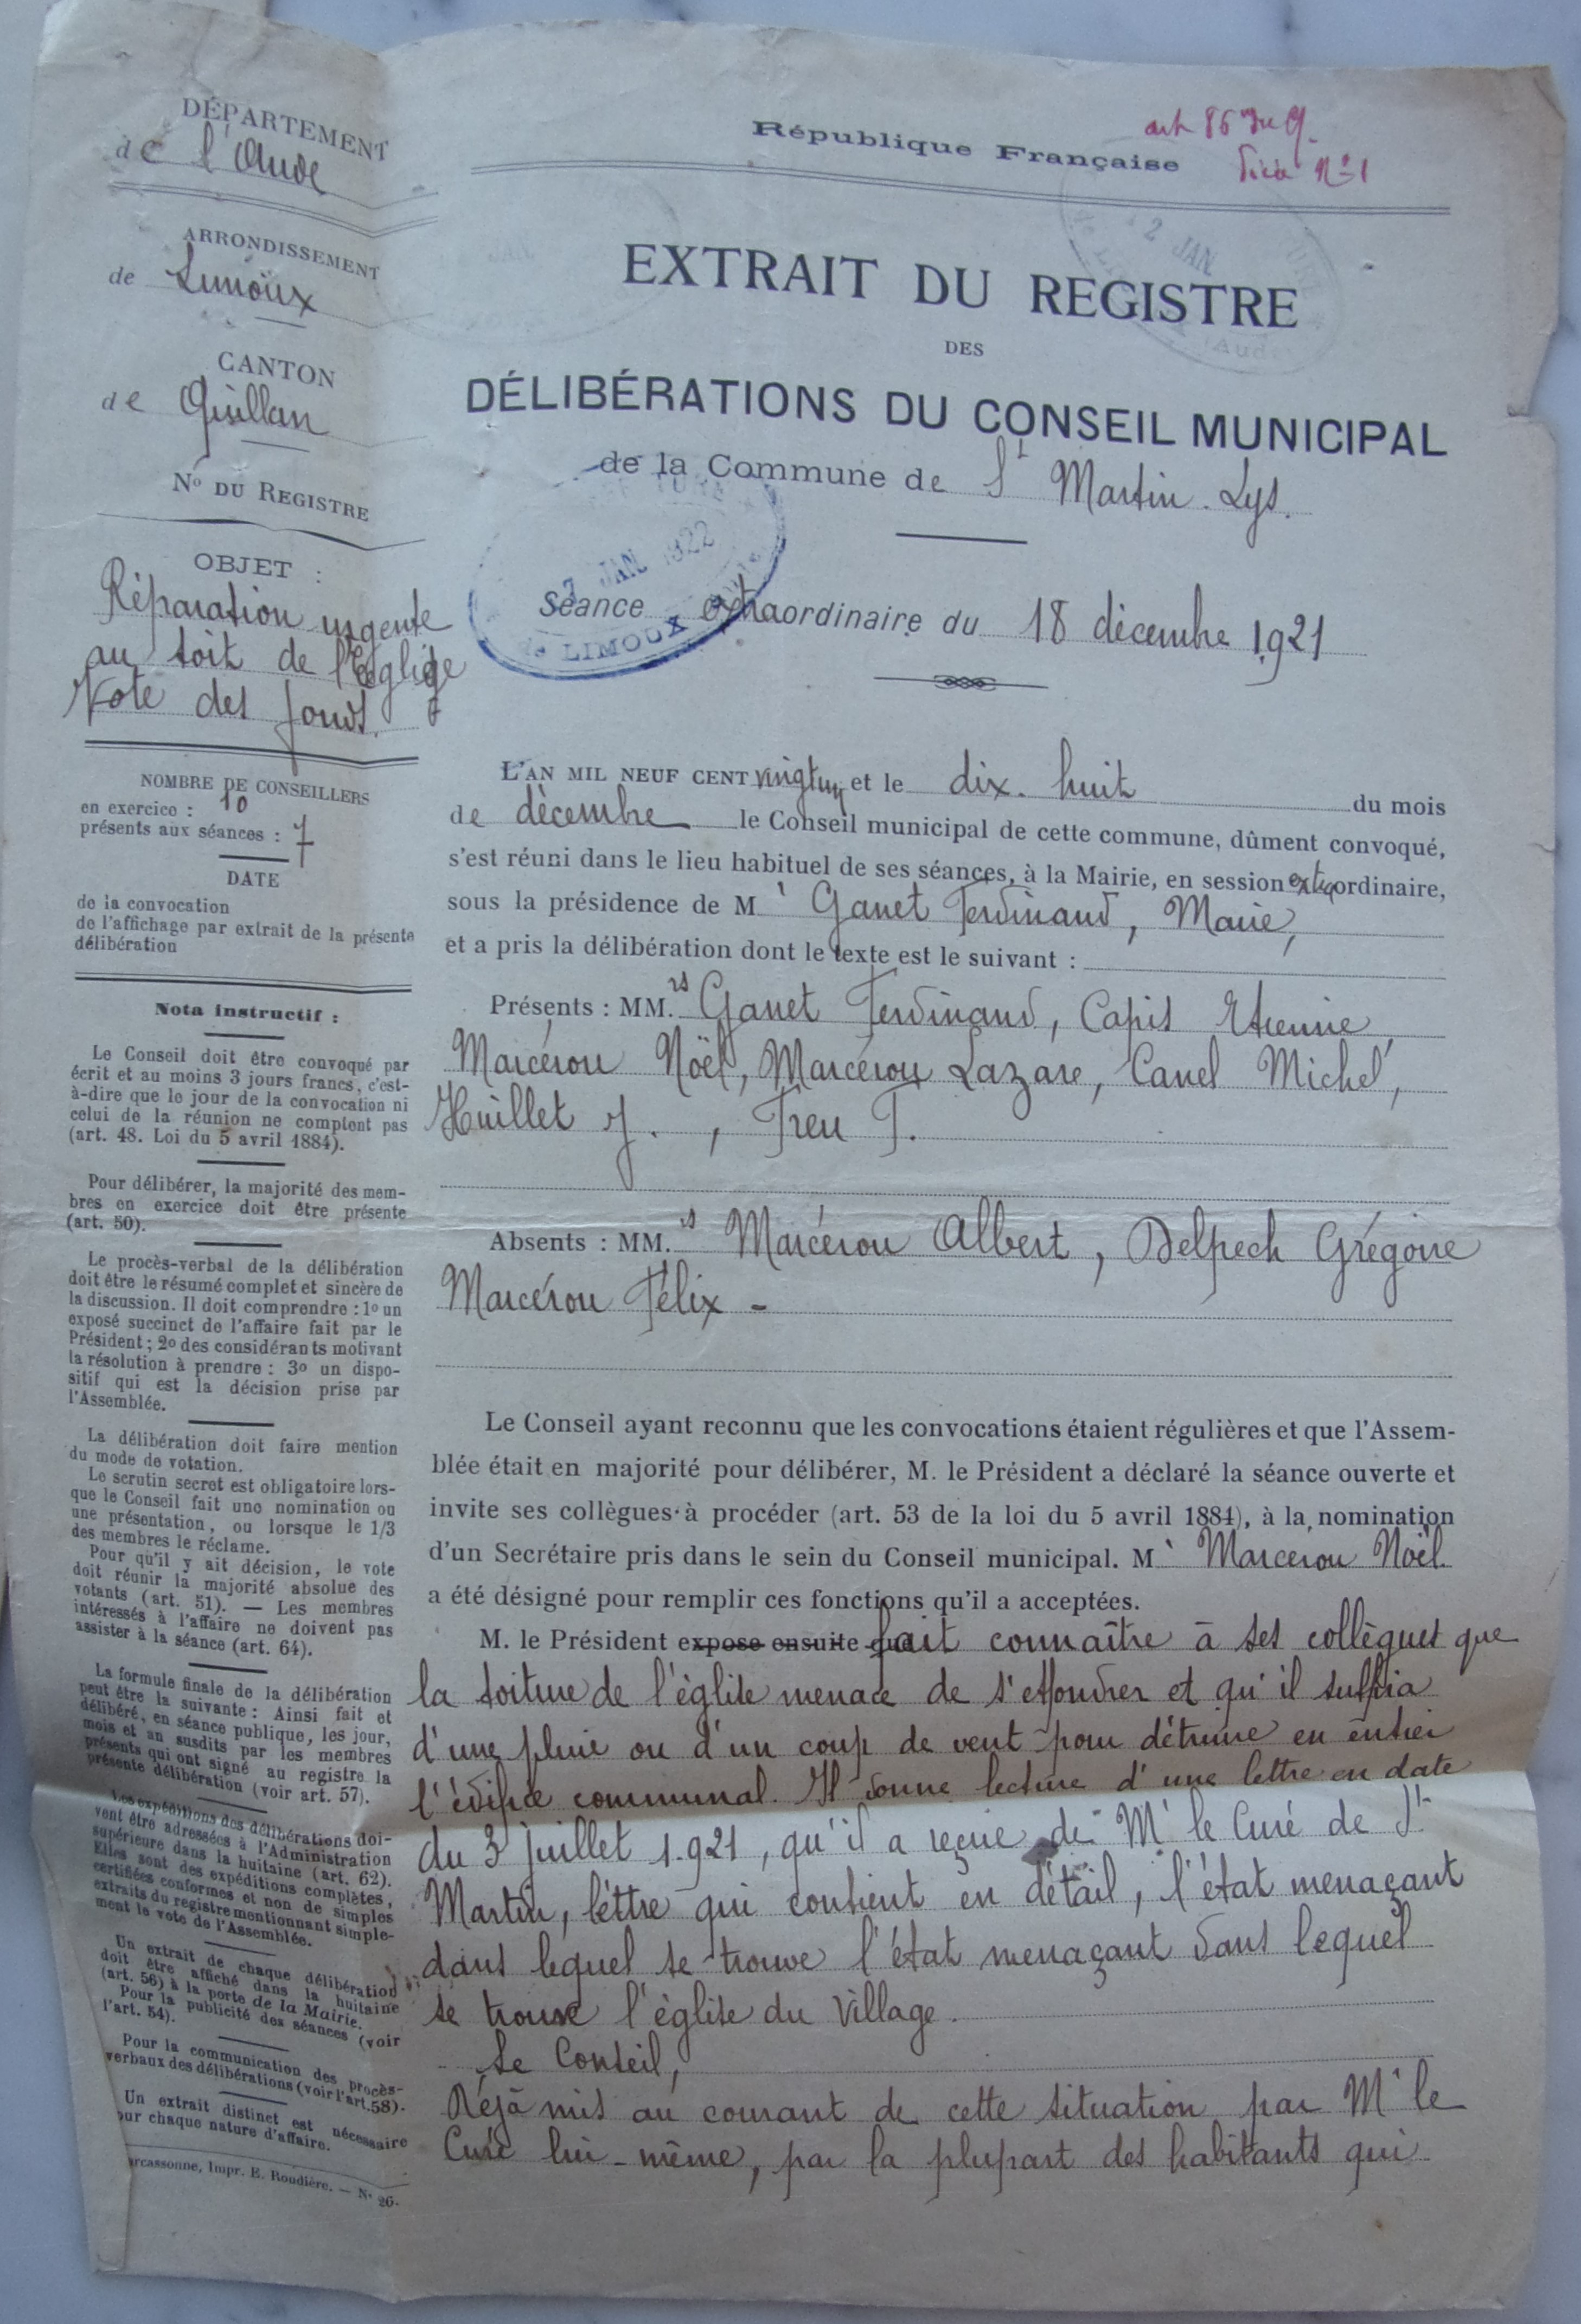 DÉPARTEMENT
de l'Aude
ARRONDISSEMENT
de Limoux
CANTON
de Quillan
No DU REGISTRE
OBJET :
Réparation urgente
au toit de l'Eglise
Vote des fonds.
NOMBRE DE CONSEILLERS
en exercice : 10
présents aux séances : 7
DATE
de la convocation
de l'affichage par extrait de la présente
délibération
Nota instructif :
Le Conseil doit être convoqué par
écrit et au moins 3 jours francs, c'est-
à-dire que le jour de la convocation ni
celui de la réunion ne comptent pas
(art. 48. Loi du 5 avril 1884).
Pour délibérer, la majorité des mem-
bres en exercice doit être présente
(art. 50).
Le procès-verbal de la délibération
doit être le résumé complet et sincère de
la discussion. Il doit comprendre : 1o un
exposé succinct de l'affaire fait par le
Président ; 2o des considérants motivant
la résolution à prendre : 3o un dispo-
sitif qui est la décision prise par
l'Assemblée.
La délibération doit faire mention
du mode de votation.
Le scrutin secret est obligatoire lors-
que le Conseil fait une nomination ou
une présentation, ou lorsque le 1/3
des membres le réclame.
Pour qu'il y ait décision, le vote
doit réunir la majorité absolue des
votants (art. 51). — Les membres
intéressés à l'affaire ne doivent pas
assister à la séance (art. 64).
La formule finale de la délibération
peut être la suivante : Ainsi fait et
délibéré, en séance publique, les jour,
mois et an susdits par les membres
présents qui ont signé au registre la
présente délibération (voir art. 57).
Les expéditions des délibérations doi-
vent être adressées à l'Administration
supérieure dans la huitaine (art. 62).
Elles sont des expéditions complètes,
certifiées conformes et non de simples
extraits du registre mentionnant simple-
ment le vote de l'Assemblée.
Un extrait de chaque délibération
doit être affiché dans la huitaine
(art. 56) à la porte de la Mairie.
Pour la publicité des séances (voir
l'art. 54).
Pour la communication des procès-
verbaux des délibérations (voir l'art. 58).
Un extrait distinct est nécessaire
our chaque nature d'affaire.
arcassonne, Impr. E. Roudière. — No 26.
République Française
art 86
No 1
2 JAN
(Aude)
EXTRAIT DU REGISTRE
DES
DÉLIBÉRATIONS DU CONSEIL MUNICIPAL
de la Commune de St Martin-Lys.
7 JAN 1922
LIMOUX
Séance extraordinaire du 18 décembre 1921
L'AN MIL NEUF CENT vingt un et le dix-huit du mois
de décembre le Conseil municipal de cette commune, dûment convoqué,
s'est réuni dans le lieu habituel de ses séances, à la Mairie, en session extraordinaire,
sous la présidence de Mr Ganet Ferdinand, Maire,
et a pris la délibération dont le texte est le suivant :
Présents : MM.rs Ganet Ferdinand, Capis Etienne,
Marcérou Noël, Marcérou Lazare, Canel Michel,
Huillet J., Treu T.
Absents : MM.rs Marcérou Albert, Delpech Grégoire
Marcérou Félix -
Le Conseil ayant reconnu que les convocations étaient régulières et que l'Assem-
blée était en majorité pour délibérer, M. le Président a déclaré la séance ouverte et
invite ses collègues à procéder (art. 53 de la loi du 5 avril 1884), à la nomination
d'un Secrétaire pris dans le sein du Conseil municipal. Mr Marcerou Noël
a été désigné pour remplir ces fonctions qu'il a acceptées.
M. le Président expose ensuite que fait connaître à ses collègues que
la toiture de l'église menace de s'effondrer et qu'il suffira
d'une pluie ou d'un coup de vent pour détruire en entier
l'édifice communal. Il donne lecture d'une lettre en date
du 3 juillet 1921, qu'il a reçue de Mr le Curé de St
Martin, léttre qui contient en détail, l'état menaçant
dans lequel se trouve l'état menaçant dans lequel
se trouve l'église du Village.
Le Conseil,
Déjà mis au courant de cette situation par Mr le
Curé lui-même, par la plupart des habitants qui